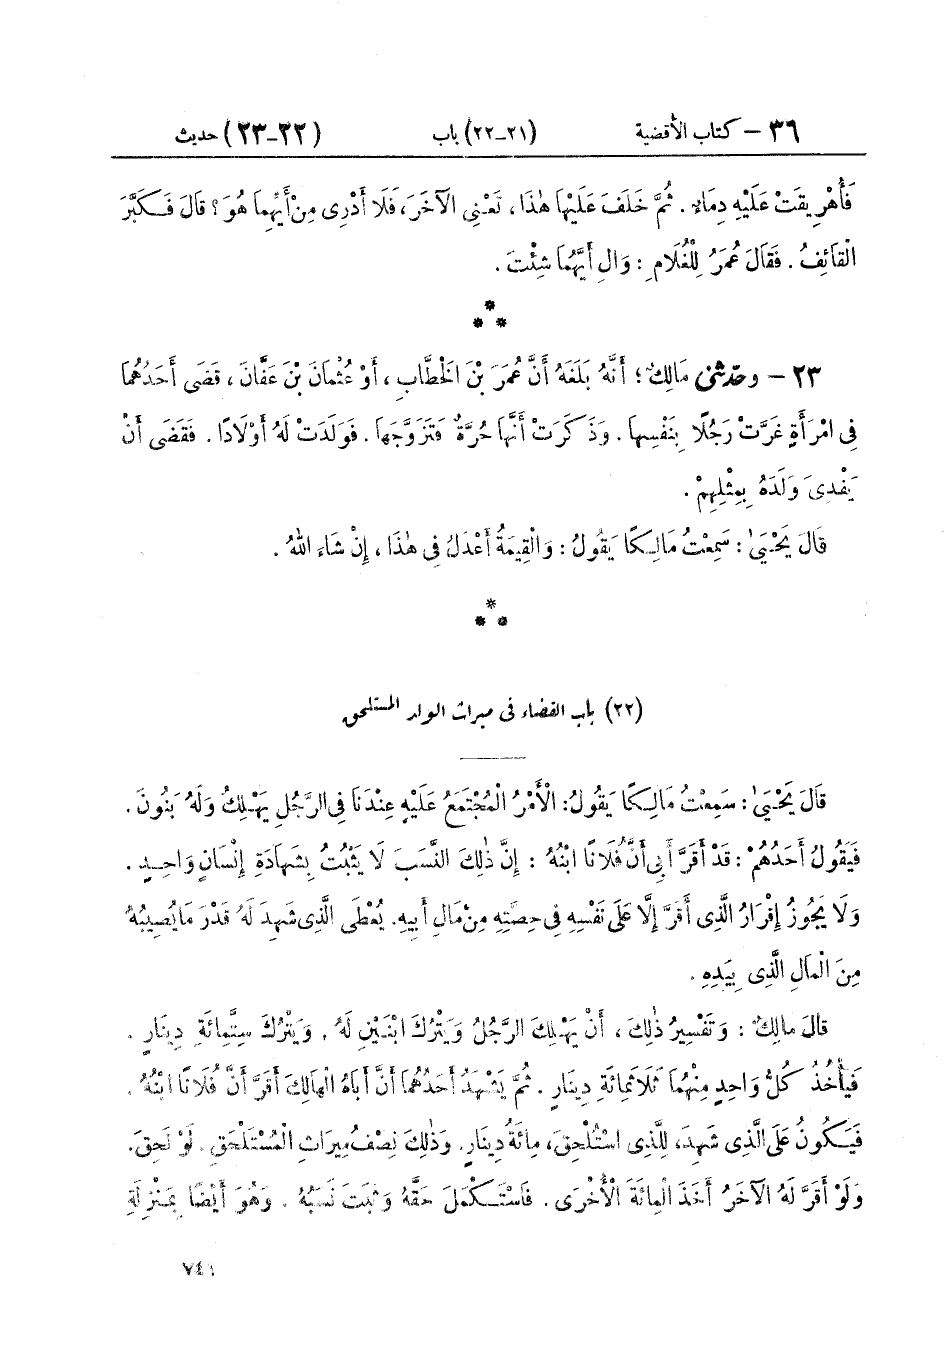 ٣٦ – كتاب الأقضية (٢١-٢٢) باب (٢٢-٢٣) حديث
فَأُهْرِيقَتْ عَلَيْهِ دِمَاءٌ . ثُمَّ خَلَفَ عَلَيْهَا هٰذَا ، تَعْنِى الْآخَرَ، فَلَا أَدْرِى مِنْ أَيِّهِمَا هُوَ ؟ قَالَ فَكَبَّرَ
الْقَائِفُ . فَقَالَ عُمَرُ لِلْغُلَامِ : وَالِ أَيَّهُمَا شِئْتَ .
*
* *
٢٣ – وحدّثنى مَالِكٌ ؛ أَنَّهُ بَلَغَهُ أَنَّ عُمَرَ بْنَ الْخَطَّابِ ، أَوْ عُثْمَانَ بْنَ عَفَّانَ ، قَضَى أَحَدُهُمَا
فِى امْرَأَةٍ غَرَّتْ رَجُلًا بِنَفْسِهَا . وَذَكَرَتْ أَنَّهَا حُرَّةٌ فَتَزَوَّجَهَا . فَوَلَدَتْ لَهُ أَوْلَادًا . فَقَضَى أَنْ
يَفْدِىَ وَلَدَهُ بِمِثْلِهِمْ .
قَالَ يَحْيَىٰ : سَمِعْتُ مَالِكًا يَقُولُ : وَالْقِيمَةُ أَعْدَلُ فِى هٰذَا ، إِنْ شَاءَ اللهُ .
*
* *
(٢٢) باب القضاء فى ميراث الولد المستلحق
قَالَ يَحْيَىٰ : سَمِعْتُ مَالِكًا يَقُولُ: الْأَمْرُ الْمُجْتَمَعُ عَلَيْهِ عِنْدَنَا فِى الرَّجُلِ يَهْلِكُ وَلَهُ بَنُونَ .
فَيَقُولُ أَحَدُهُمْ : قَدْ أَقَرَّ أَبِى أَنَّ فُلَانًا ابْنُهُ : إِنَّ ذٰلِكَ النَّسَبَ لَا يَثْبُتُ بِشَهَادَةِ إِنْسَانٍ وَاحِدٍ .
وَلَا يَجُوزُ إِقْرَارُ الَّذِى أَقَرَّ إِلَّا عَلَى نَفْسِهِ فِى حِصَّتِهِ مِنْ مَالِ أَبِيهِ. يُعْطَى الَّذِى شَهِدَ لَهُ قَدْرَ مَا يُصِيبُهُ
مِنَ الْمَالِ الَّذِى بِيَدِهِ .
قَالَ مَالِكٌ : وَتَفْسِيرُ ذٰلِكَ ، أَنْ يَهْلِكَ الرَّجُلُ وَيَتْرُكَ ابْنَيْنِ لَهُ . وَيَتْرُكَ سِتَّمِائَةِ دِينَارٍ .
فَيَأْخُذُ كُلُّ وَاحِدٍ مِنْهُمَا ثَلَاثَمِائَةِ دِينَارٍ . ثُمَّ يَشْهَدُ أَحَدُهُمَا أَنَّ أَبَاهُ الْهَالِكَ أَقَرَّ أَنَّ فُلَانًا ابْنُهُ .
فَيَكُونُ عَلَى الَّذِى شَهِدَ، لِلَّذِى اسْتُلْحِقَ، مِائَةُ دِينَارٍ. وَذٰلِكَ نِصْفُ مِيرَاثِ الْمُسْتَلْحَقِ . لَوْ لَحِقَ.
وَلَوْ أَقَرَّ لَهُ الْآخَرُ أَخَذَ الْمِائَةَ الْأُخْرَى . فَاسْتَكْمَلَ حَقَّهُ وَثَبَتَ نَسَبُهُ . وَهُوَ أَيْضًا بِمَنْزِلَةِ
٧٤١